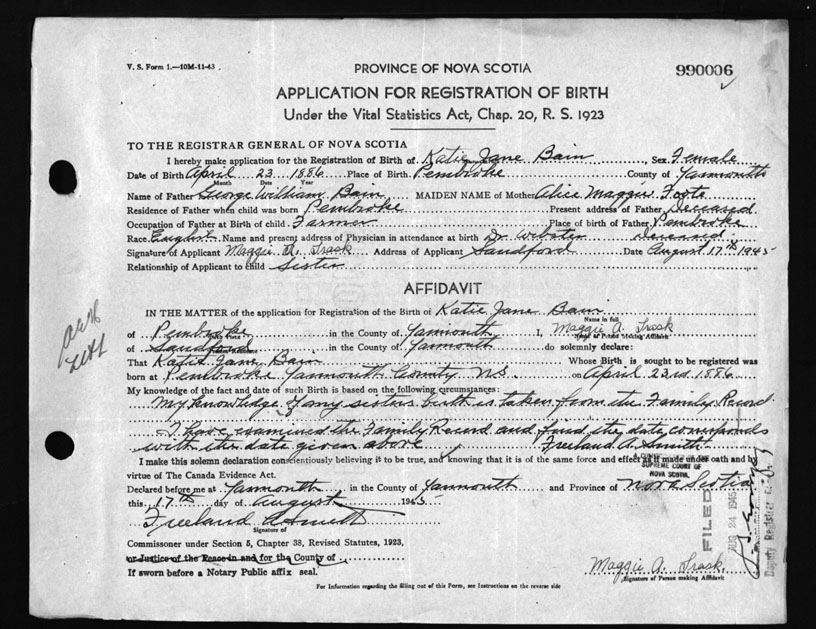 V. S. Form 1.—10M-11-43
PROVINCE OF NOVA SCOTIA
990006
APPLICATION FOR REGISTRATION OF BIRTH
Under the Vital Statistics Act, Chap. 20, R. S. 1923
TO THE REGISTRAR GENERAL OF NOVA SCOTIA
I hereby make application for the Registration of Birth of Katie Jane Bain, Sex Female
Date of Birth April 23 1886 Place of Birth Pembroke County of Yarmouth
Month Date Year
Name of Father George William Bain MAIDEN NAME of Mother Alice Maggie Foote
Residence of Father when child was born Pembroke Present address of Father Deceased
Occupation of Father at Birth of child Farmer Place of birth of Father Pembroke
Race English Name and present address of Physician in attendance at birth Dr Webster Deceased
Signature of Applicant Maggie A. Trask Address of Applicant Sandford Date August 17th 1945
Relationship of Applicant to child Sister
AFFIDAVIT
IN THE MATTER of the application for Registration of the Birth of Katie Jane Bain
Name in full
of Pembroke in the County of Yarmouth I, Maggie A. Trask
Name of Person Making Affidavit
of Sandford in the County of Yarmouth do solemnly declare:
That Katie Jane Bain Whose Birth is sought to be registered was
born at Pembroke Yarmouth County N.S. on April 23rd 1886
My knowledge of the fact and date of such Birth is based on the following circumstances:
My knowledge of my sisters birth is taken from the Family Record
I have examined the Family Record and find the date corresponds
with the date given above Freeland A. Smith
I make this solemn declaration conscientiously believing it to be true, and knowing that it is of the same force and effect as if made under oath and by
virtue of The Canada Evidence Act.
SUPREME COURT OF
NOVA SCOTIA
Declared before me at Yarmouth in the County of Yarmouth and Province of Nova Scotia
this 17th day of August 1945
Freeland A Smith
Signature of
Commissioner under Section 5, Chapter 38, Revised Statutes, 1923,
or Justice of the Peace in and for the County of
If sworn before a Notary Public affix seal.
Maggie A. Trask
Signature of Person making Affidavit
For Information regarding the filling out of this Form, see Instructions on the reverse side
FILED
AUG 24 1945
Deputy Registrar